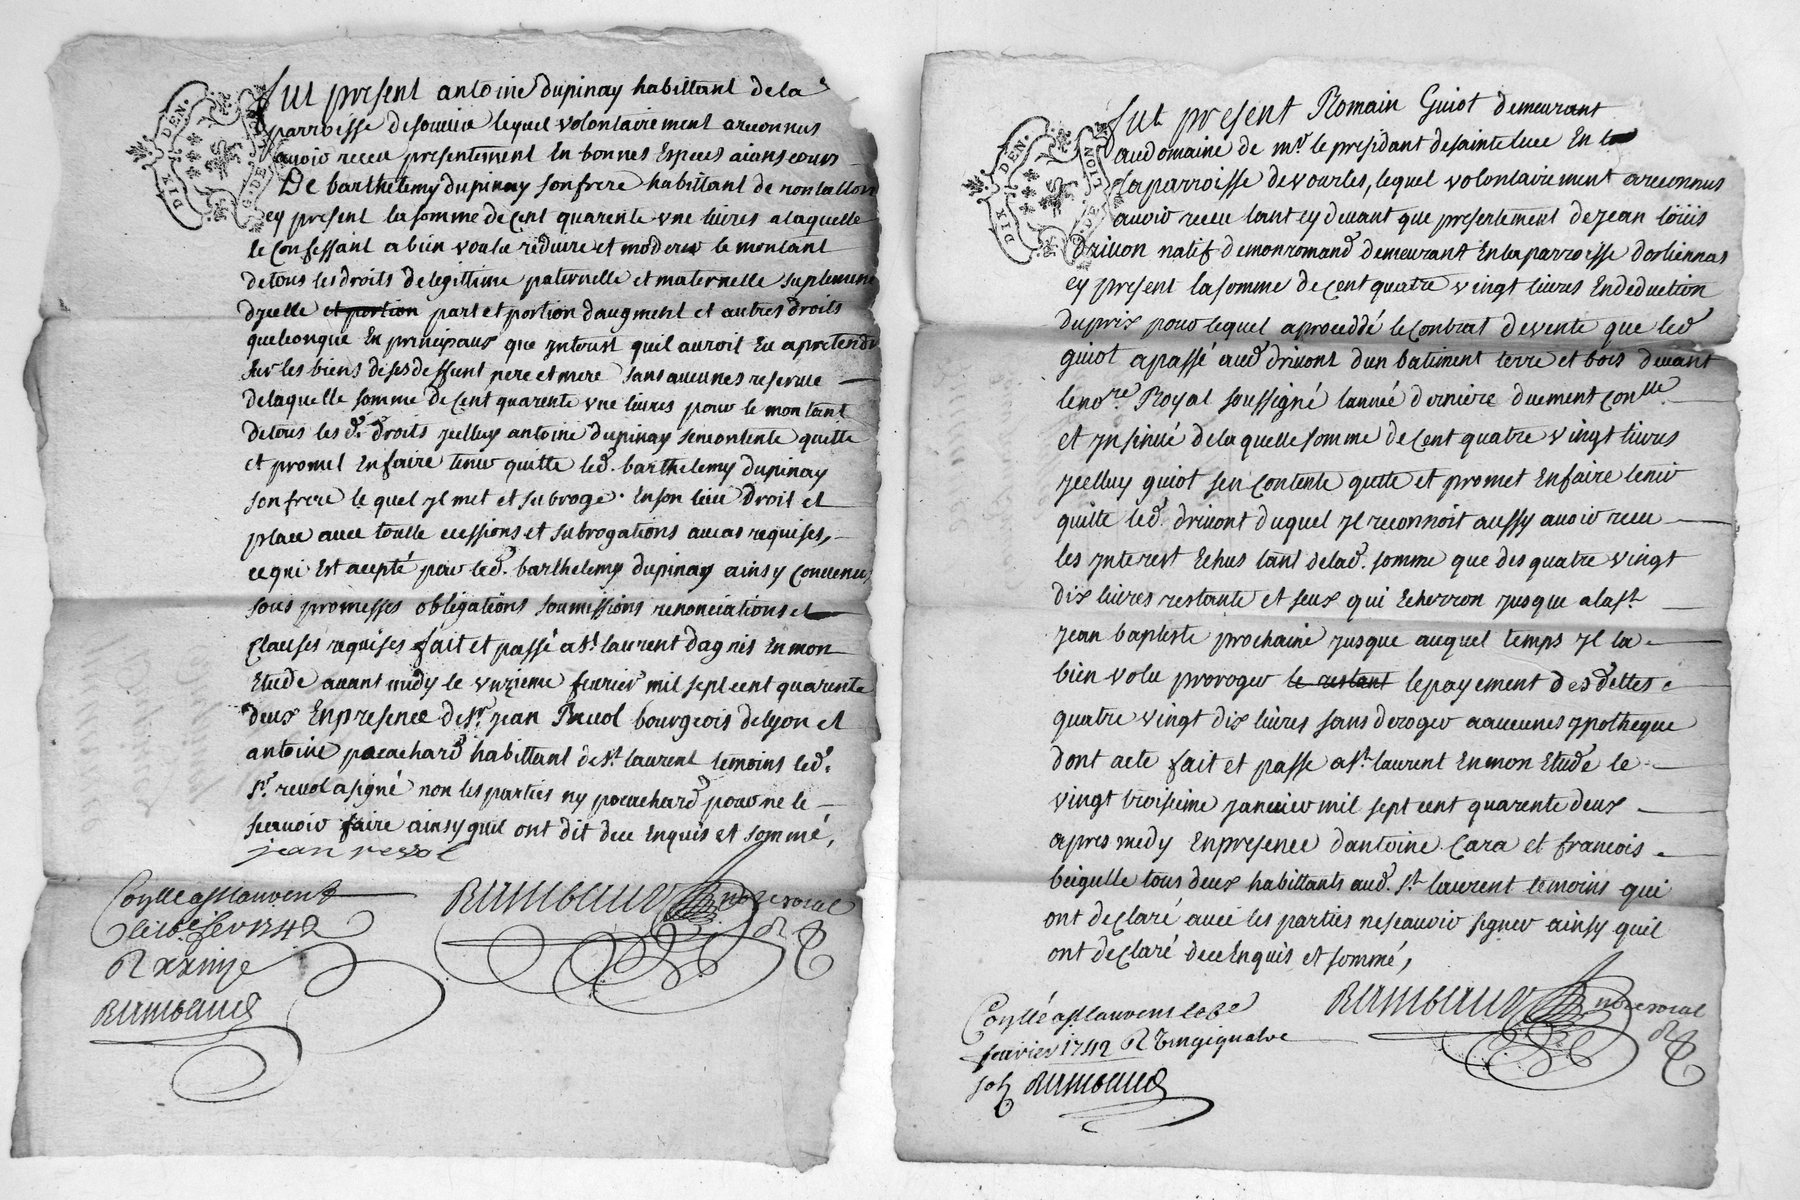 DIX DEN.
G. DE LION
fut present antoine dupinay habittant de la
parroisse de lequel volontairement a reconnus
avoir receu presentement En bonnes Especes aians cours
De barthelemy dupinay son frere habittant de
cy present la somme de Cent quarente une livres a laquelle
le Confessant a bien voulu reduire et moderer le montant
de tous les droits de legittime paternelle et maternelle suplement
dycelle et portion part et portion daugment et autres droits
quelconque En principaux que Interest quil auroit Eu a pretendre
sur les biens de ses deffunt pere et mere sans aucunes reserve
de laquelle somme de Cent quarente une livres pour le montant
de tous les d. droits ycelluy antoine dupinay se contente quitte
et promet En faire tenir quitte led. barthelemy dupinay
son frere le quel yl met et subroge En son lieu Droit et
place avec toutte cessions et subrogations au cas requises,
ce qui Est acepté par led. barthelemy dupinay ainsy Convenu
sous promesses obligations soumissions renonciations et
Clauses requises fait et passé a St. laurent dagnis En mon
Etude avant midy le unzieme fevrier mil sept cent quarente
deux En presence de Sr. jean Revol bourgeois de lyon et
antoine pacachard habittant de St. laurent temoins led.
Sr. revol a signé non les parties ny pacachard pour ne le
scavoir faire ainsy quil ont dit de ce Enquis et sommé,
jean revol
Conlle a St Lauvent
le fev 1742
R
Rambaud
Rambaud nore royal
DIX DEN.
G. DE LION
fut present Romain Guiot demeurant
au domaine de mr. le presidant de sainte luce En la
la parroisse de vourles, lequel volontairement a reconnus
avoir receu tant cy devant que presentement de jean loüis
drivon natif de monromand demeurant En la parroisse dorliennas
cy present la somme de Cent quatre vingt livres En deduction
du prix pour lequel a proceddé le Contrat de vente que led
guiot a passé aud drivont dun batiment terre et bois devant
le nore Royal soussigné lannée derniere duement Conlle.
et Insinué de laquelle somme de Cent quatre vingt livres
ycelluy guiot sen Contente quitte et promet En faire tenir
quitte led. drivont duquel yl reconnoit aussy avoir receu
les Interest Echus tant de lad. somme que des quatre vingt
dix livres restante et seux qui Echerron jusque a la St.
jean baptiste prochaine jusque auquel temps yl la
bien volu proroger le restant le payement des dettes
quatre vingt dix livres sans deroger a aucunes ypotheque
dont acte fait et passe a St. laurent En mon Etude le
vingt troisieme janvier mil sept cent quarente deux
apres midy En presence dantoine Cara et francois
beigulle tous deux habittants aud. St. laurent temoins qui
ont declaré avec les parties ne scavoir signer ainsy quil
ont declaré de ce Enquis et sommé,
Rambaud nore royal
Conllé a St Lauvent le
fevrier 1742 R vingtquatre
sols Rambaud